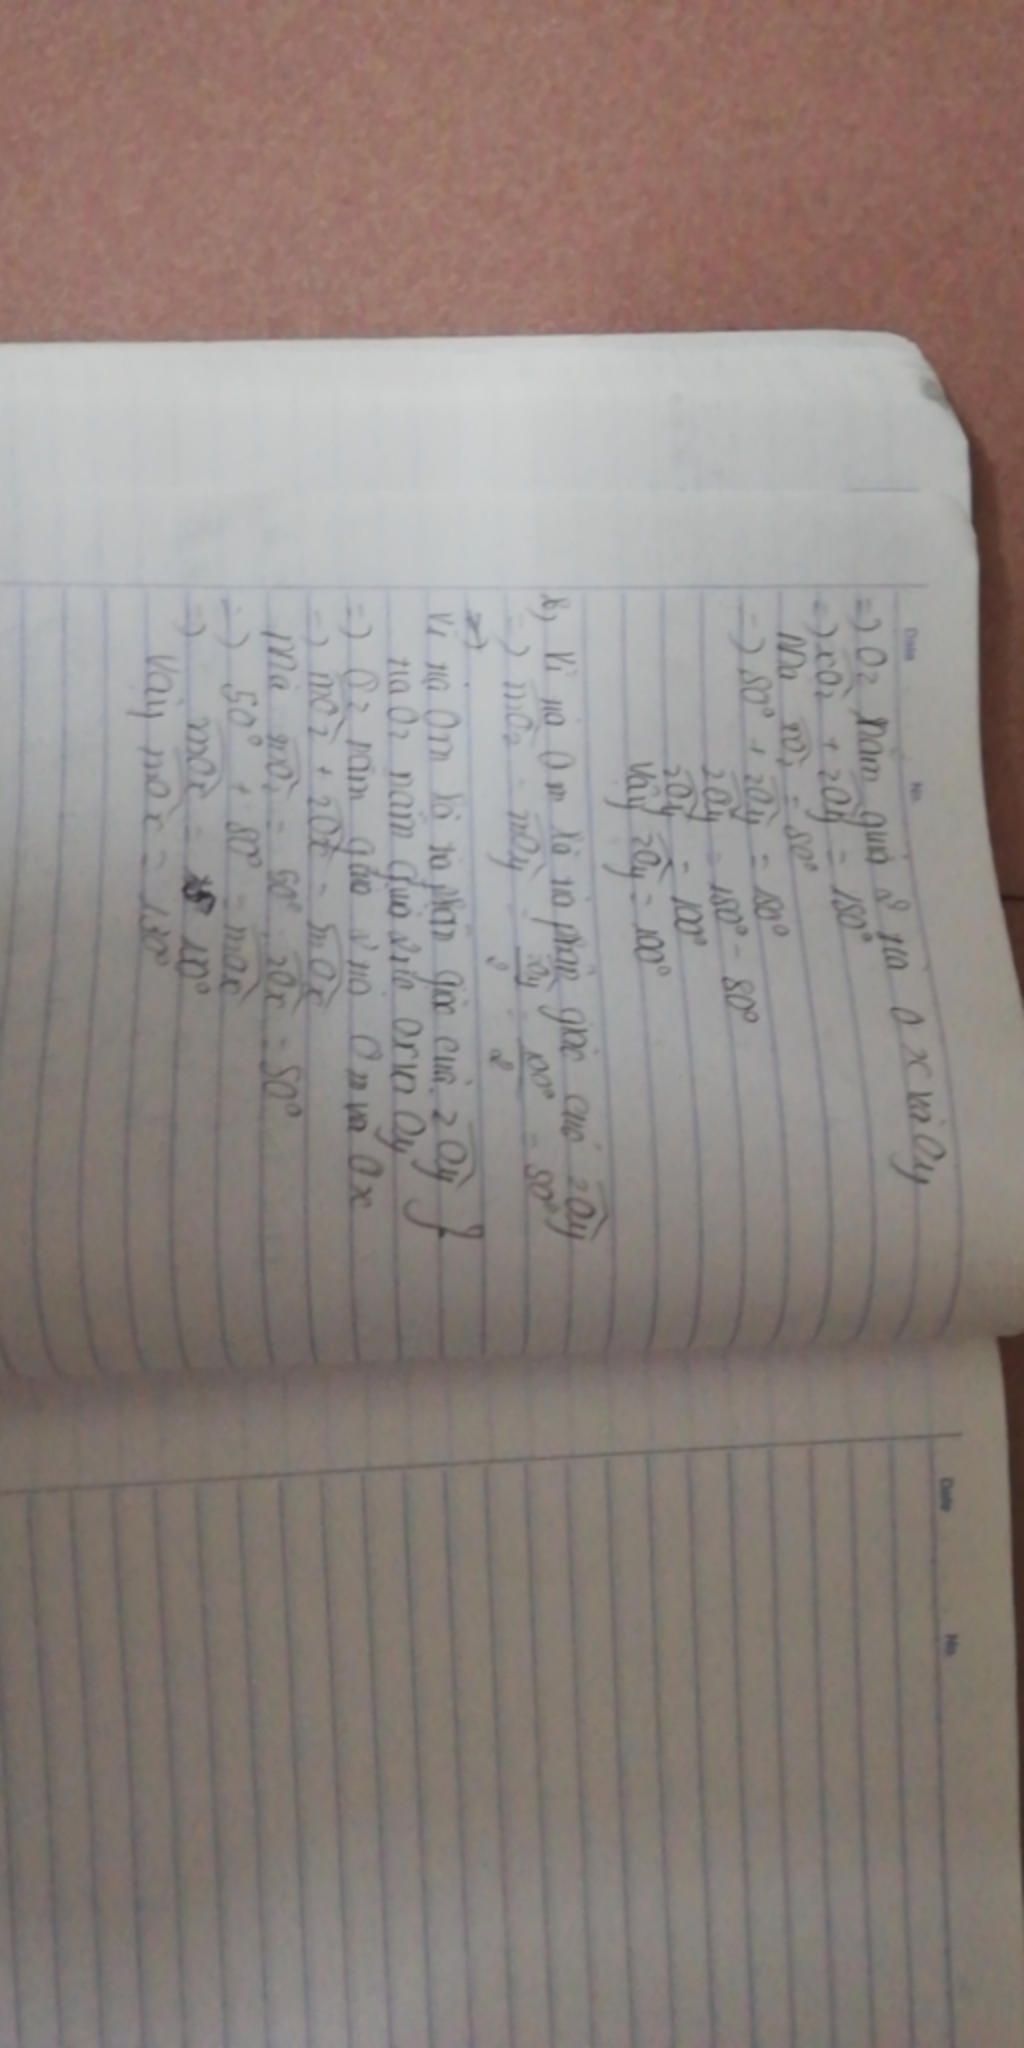 Date No.
=) Oz nằm giữa 2 tia Ox và Oy
=) xOz + zOy = 180°
Mà xOz = 80°
=) 80° + zOy = 180°
zOy = 180° - 80°
zOy = 100°
Vậy zOy = 100°
b, Vì tia Om là tia phân giác của zOy
=) mOz = mOy = zOy/2 = 100°/2 = 50°
Vì tia Om là tia phân giác của zOy }
tia Oz nằm giữa 2 tia Ox và Oy
=) Oz nằm giữa 2 tia Om và Ox
=) mOz + zOx = mOx
Mà mOz = 50°, zOx = 80°
=) 50° + 80° = mOx
=) mOx = 130°
Vậy mOx = 130°
Date No.